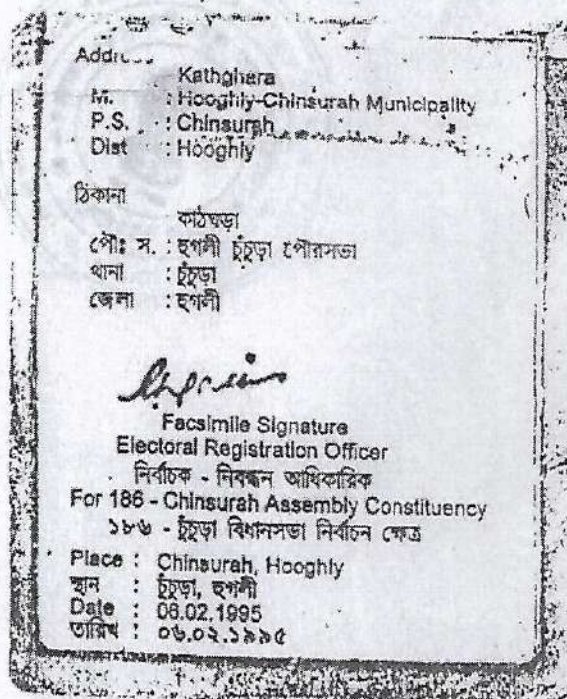 Address
Kathghara
M. : Hooghly-Chinsurah Municipality
P.S. : Chinsurah
Dist : Hooghly
ঠিকানা
কাঠঘড়া
পৌঃ স. : হুগলী চুঁচুড়া পৌরসভা
থানা : চুঁচুড়া
জেলা : হুগলী
Facsimile Signature
Electoral Registration Officer
নির্বাচক - নিবন্ধন আধিকারিক
For 186 - Chinsurah Assembly Constituency
১৮৬ - চুঁচুড়া বিধানসভা নির্বাচন ক্ষেত্র
Place : Chinsurah, Hooghly
স্থান : চুঁচুড়া, হুগলী
Date : 06.02.1995
তারিখ : ০৬.০২.১৯৯৫